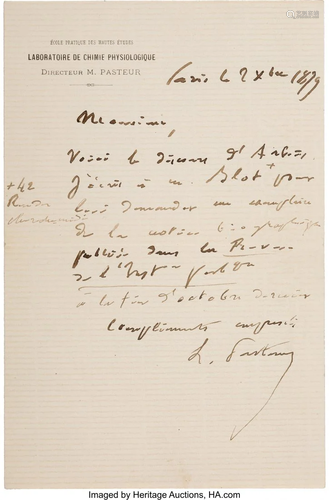 ÉCOLE PRATIQUE DES HAUTES ÉTUDES
LABORATOIRE DE CHIMIE PHYSIOLOGIQUE
DIRECTEUR M. PASTEUR
Paris le 2 Xbre 1879
Monsieur,
Voici le discours d'Arbois.
J'écris à M. Blot + pour
lui demander un exemplaire
de la notice biographique
publiée dans la
de
à la fin d'octobre dernier
Compliments empressés
L. Pasteur
+ 42
Rue
Imaged by Heritage Auctions, HA.com